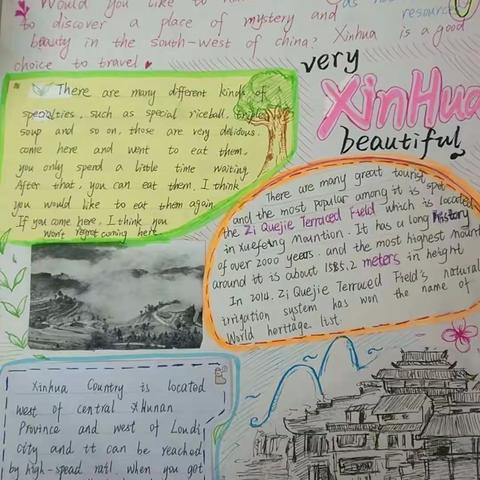 Would you like to
to discover a place of mystery and resource
beauty in the south-west of china? Xinhua is a good
choice to travel
very
XinHua
beautiful
There are many different kinds of
specialties, such as special riceball,
soup and so on, those are very delicious.
come here and went to eat them,
you only spend a little time waiting
After that, you can eat them. I think
you would like to eat them again
If you come here, I think you
won't regret coming here
There are many great tourist
and the most popular among it is spot
the Zi Quejie Terraced Field which is located
in Xuefeng Mountion. It has a long history
of over 2000 years. and the most highest mount
around it is about 1585.2 meters in height
In 2014. Zi Quejie Terraced Field's natural
irrigation system has won the name of
World heritage list.
Xinhua Country is located
west of central XHunan
Province and west of Loudi
city and tt can be reached
by high-spead rail. when you get